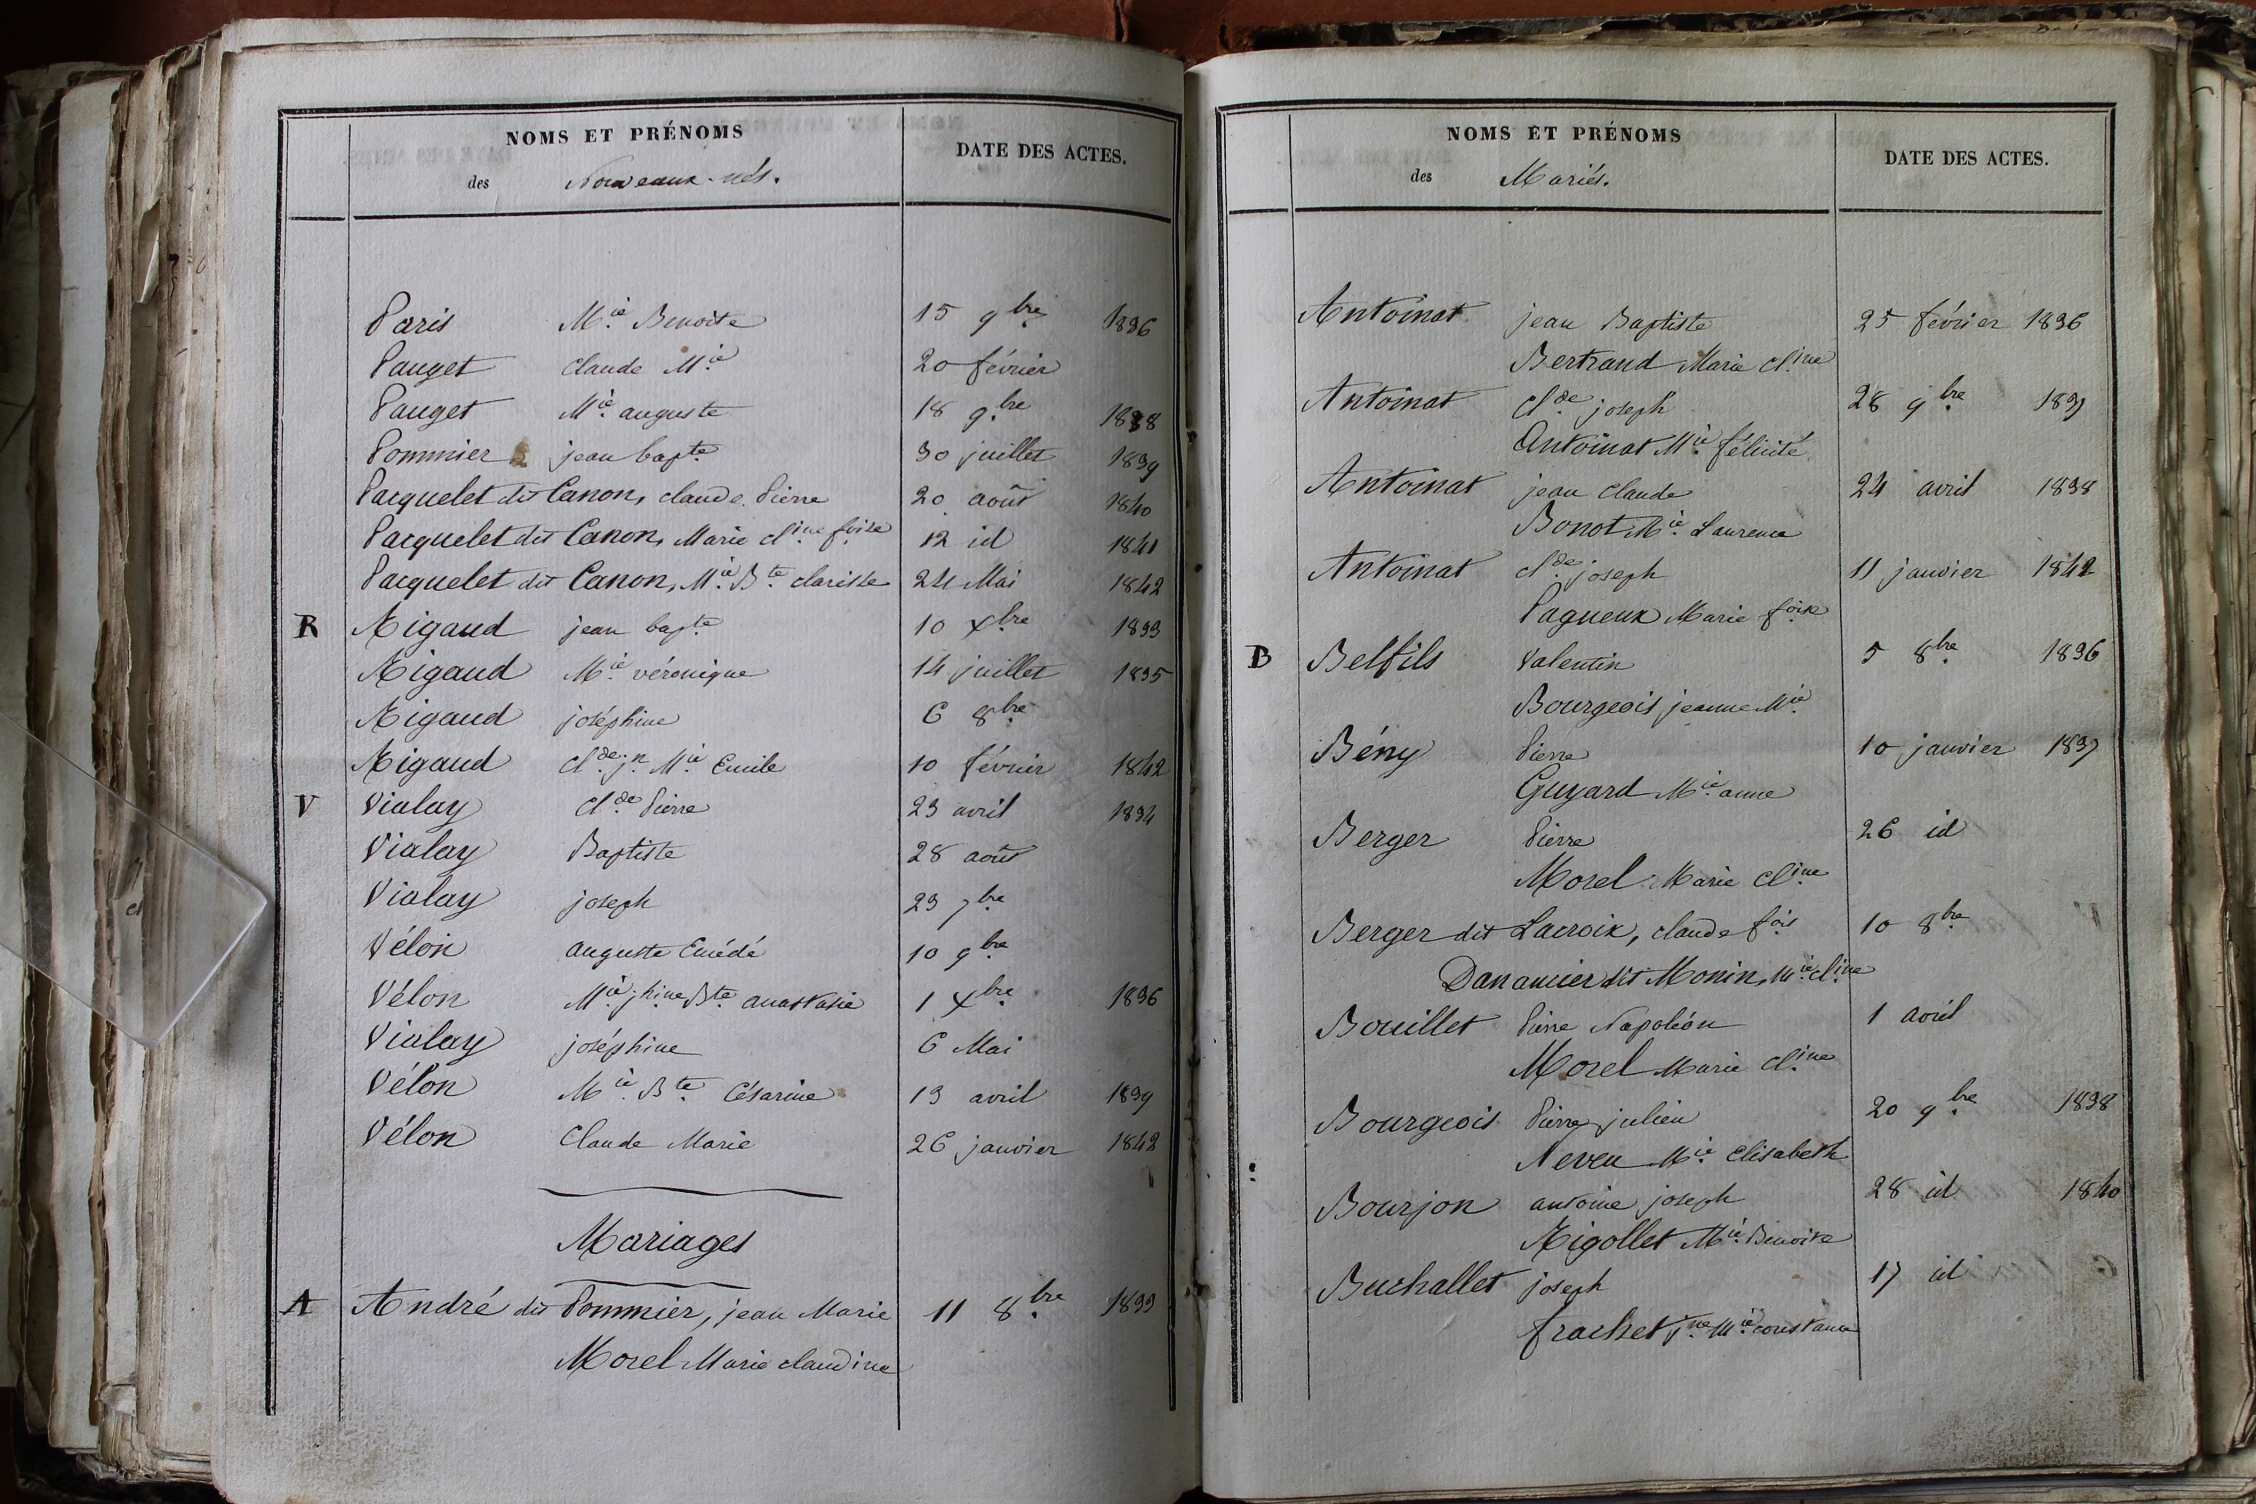 NOMS ET PRÉNOMS
des Nouveaux-nés.
DATE DES ACTES.
Paris Mie. Benoite 15 9bre. 1836
Pauget claude Mie. 20 février
Pauget Mie. auguste 18 9.bre 1838
Pommier jean bapte. 30 juillet 1839
Pacquelet dit Canon, claude Pierre 20 août 1840
Pacquelet dit Canon, Marie cl.ine foise 12 id 1841
Pacquelet dit Canon, Mie. Bte. clarisse 24 Mai 1842
R Rigaud jean bapte. 10 Xbre. 1833
Rigaud Mie. véronique 14 juillet 1835
Rigaud joséphine 6 8bre.
Rigaud Cl.de jn. Mie. Emile 10 février 1842
V Vialay Cl.de Pierre 23 avril 1834
Vialay Baptiste 28 août
Vialay joseph 23 7bre.
Vélon auguste Emédé 10 9bre.
Vélon Mie. jhine. Bte. anastasie 1 Xbre. 1836
Vialay joséphine 6 Mai
Vélon Mie. Bte. Césarine 13 avril 1839
Vélon Claude Marie 26 janvier 1842
Mariages
A André dit Pommier, jean Marie 11 8bre. 1833
Morel Marie claudine
NOMS ET PRÉNOMS
des Mariés.
DATE DES ACTES.
Antoinat jean Baptiste 25 février 1836
Bertrand Marie cl.ine
Antoinat Cl.de joseph 28 9bre. 1837
Antoinat Mie. félicité
Antoinat jean claude 24 avril 1838
Bonot Mie. Laurence
Antoinat cl.de joseph 11 janvier 1842
Pagneux Marie foise
B Belfils Valentin 5 8bre. 1836
Bourgeois jeanne Mie.
Bény Pierre 10 janvier 1837
Guyard Mie. anne
Berger Pierre 26 id
Morel Marie Cl.ine
Berger dit Lacroix, claude fois 10 8bre
Danancier dit Monin, Mie. cl.ine
Bouillet Pierre Napoléon 1 avril
Morel Marie cl.ine
Bourgeois Pierre julien 20 9bre. 1838
Neveu Mie. Elisabeth
Bourjon antoine joseph 28 id 1840
Rigollet Mie. Benoite
Buchallet joseph 17 id
frachet Mie. constance